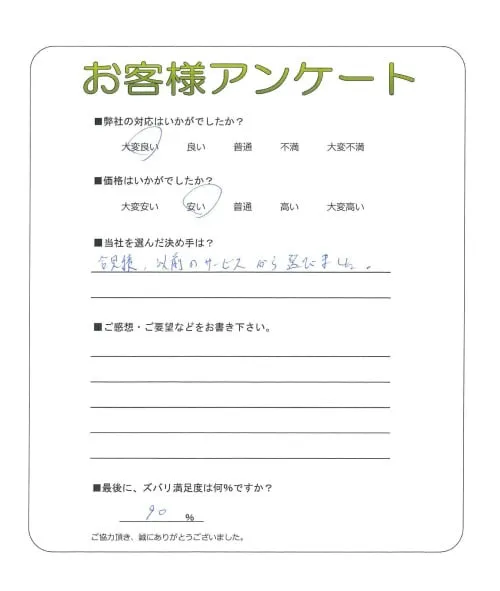 お客様アンケート
■弊社の対応はいかがでしたか？
大変良い 良い 普通 不満 大変不満
■価格はいかがでしたか？
大変安い 安い 普通 高い 大変高い
■当社を選んだ決め手は？
以前のサービスから選びました。
■ご感想・ご要望などをお書き下さい。
■最後に、ズバリ満足度は何%ですか？
90 %
ご協力頂き、誠にありがとうございました。